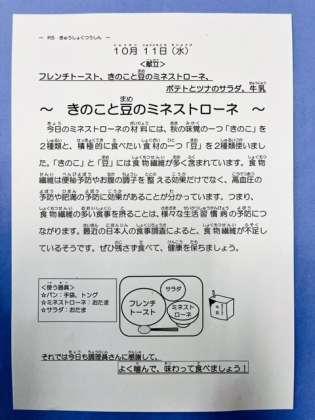 ～ R5 きゅうしょくつうしん ～
10月11日(水)
<献立>
フレンチトースト、きのこと豆のミネストローネ、
ポテトとツナのサラダ、牛乳
～ きのこと豆のミネストローネ ～
今日のミネストローネの材料には、秋の味覚の一つ「きのこ」を
2種類と、積極的に食べたい食材の一つ「豆」を2種類使いまし
た。「きのこ」と「豆」には食物繊維が多く含まれています。食物
繊維は便秘予防やお腹の調子を整える効果だけでなく、高血圧の
予防や肥満の予防に効果があることが分かっています。つまり、
食物繊維の多い食事を摂ることは、様々な生活習慣病の予防につ
ながります。最近の日本人の食事調査によると、食物繊維が不足し
ているそうです。ぜひ残さず食べて、健康を保ちましょう。
<使う器具>
☆パン：手袋、トング
☆ミネストローネ：おたま
☆サラダ：おたま
サラダ
フレンチ
トースト
ミネスト
ローネ
それでは今日も調理員さんに感謝して、
よく噛んで、味わって食べましょう！